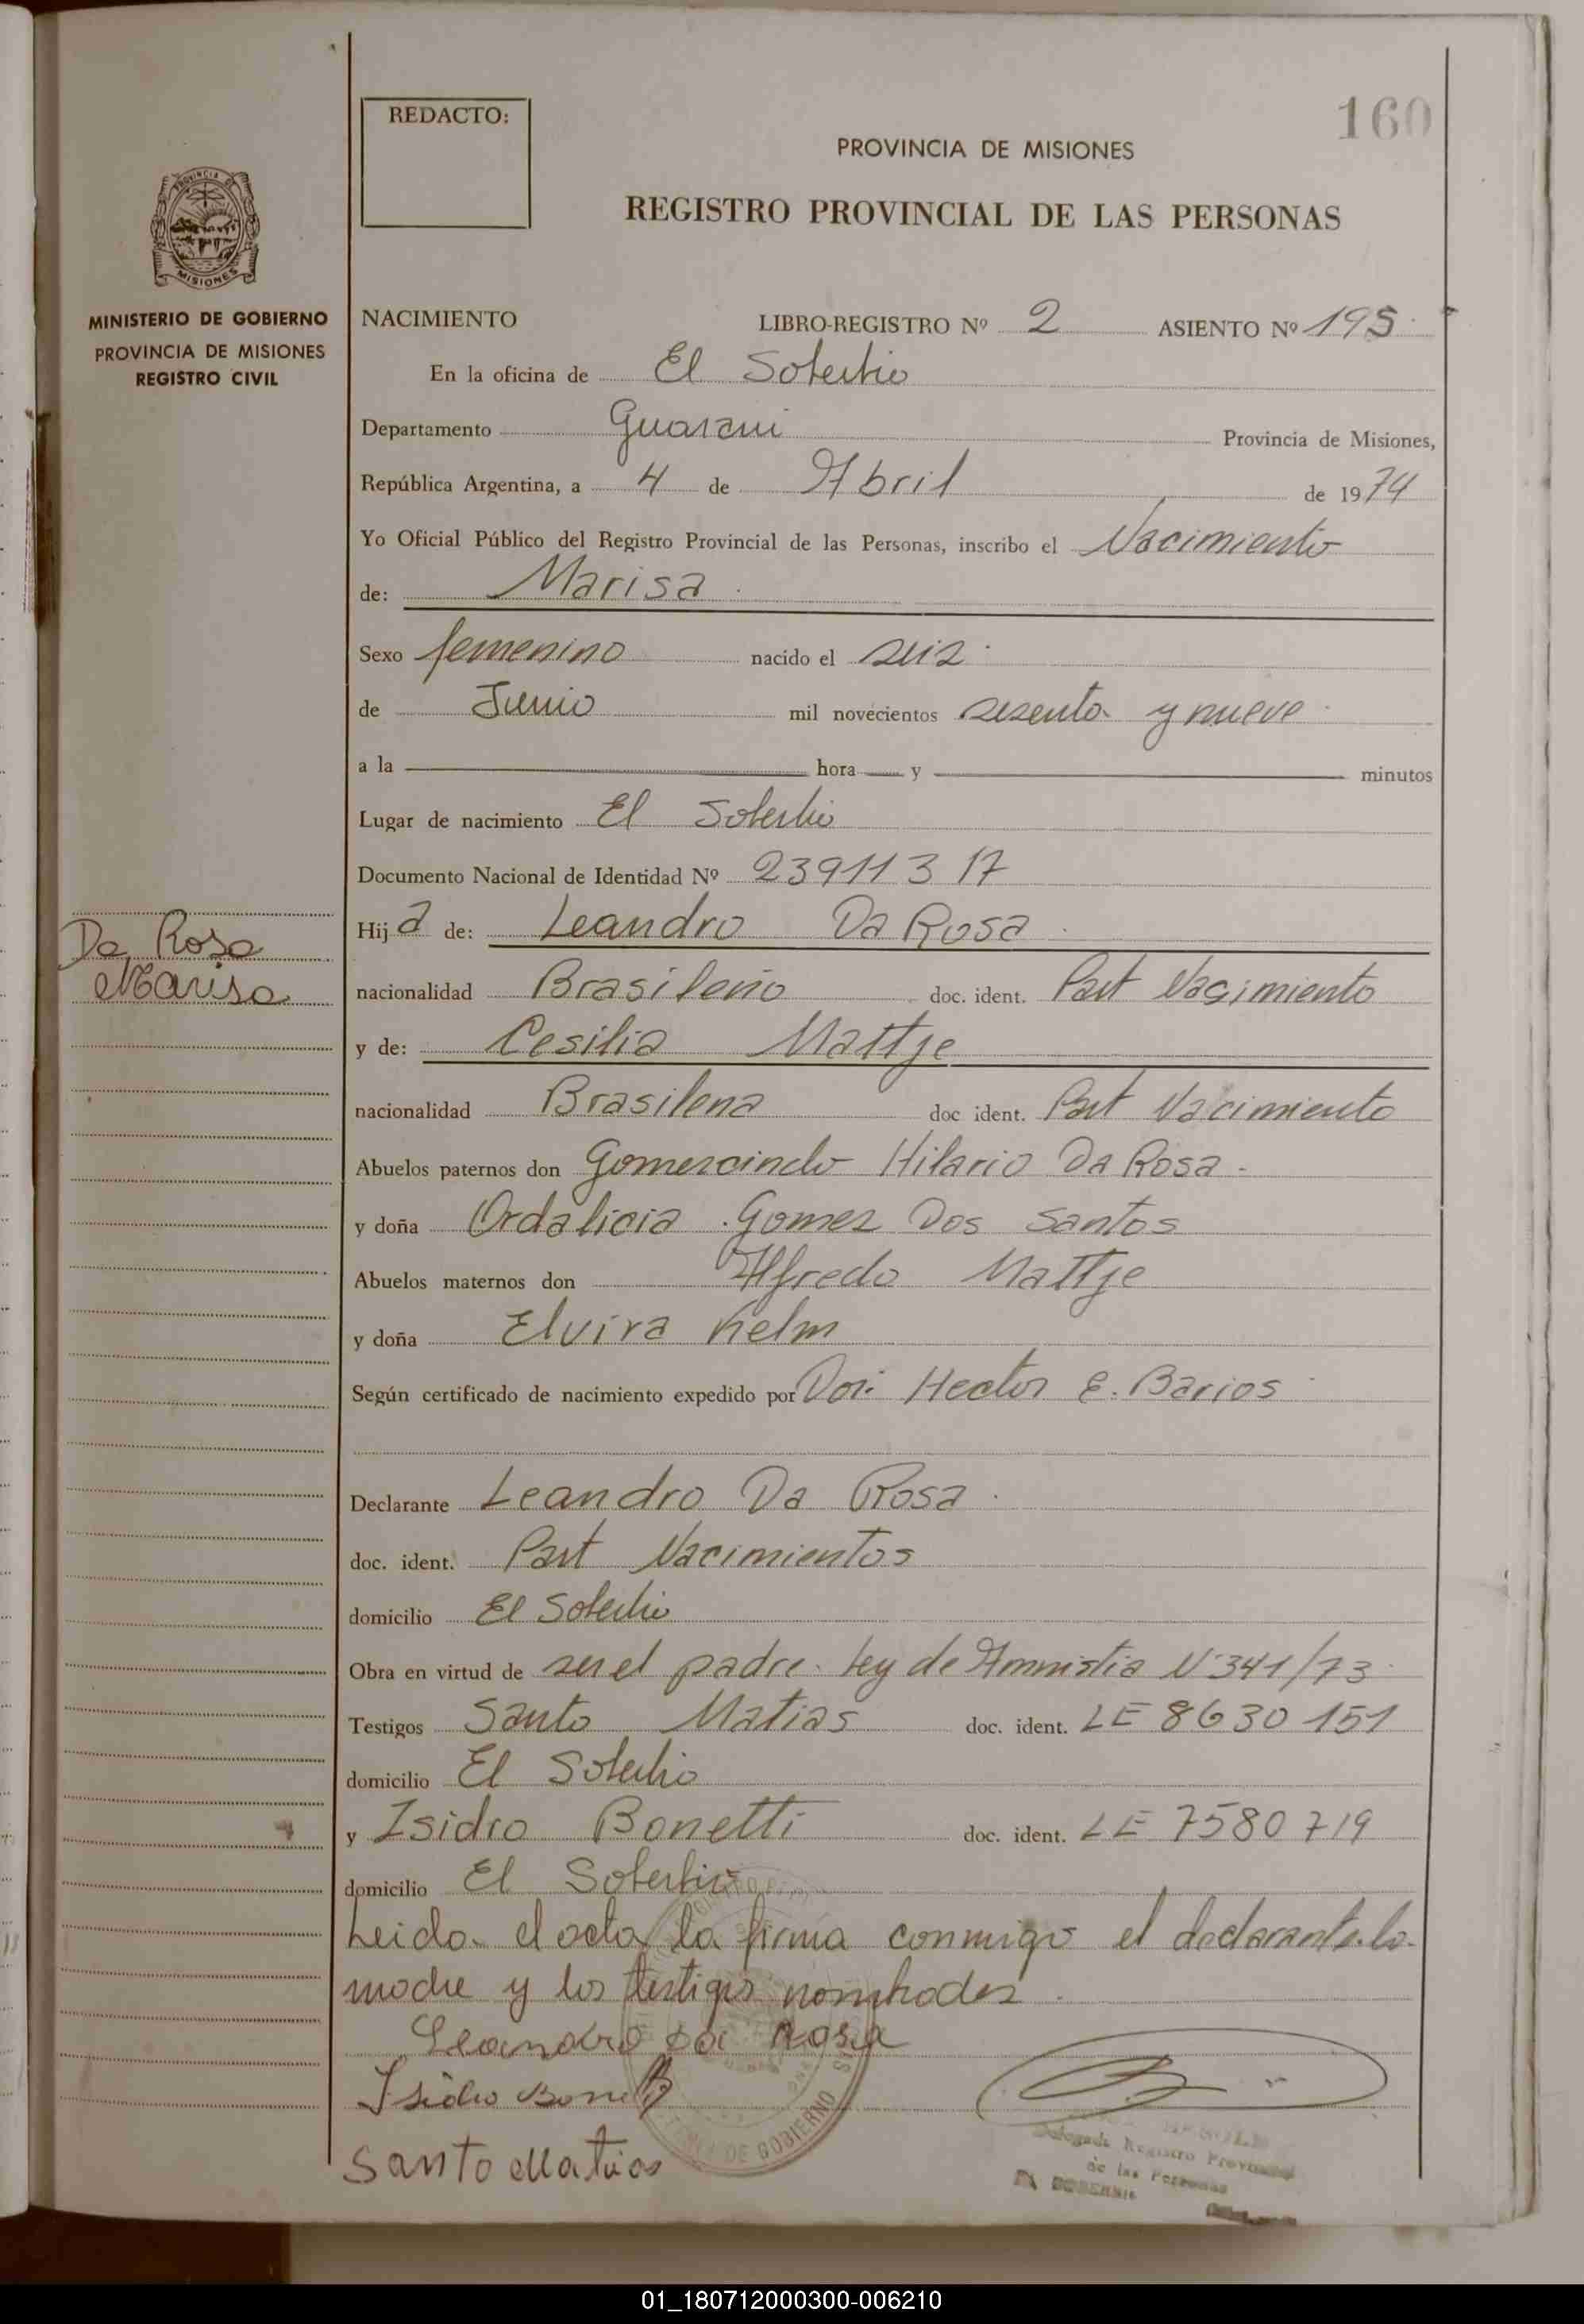 160
REDACTO:
PROVINCIA DE MISIONES
REGISTRO PROVINCIAL DE LAS PERSONAS
PROVINCIA DE
MISIONES
MINISTERIO DE GOBIERNO
PROVINCIA DE MISIONES
REGISTRO CIVIL
NACIMIENTO LIBRO-REGISTRO Nº 2 ASIENTO Nº 195
En la oficina de El Soberbio
Departamento Guarani Provincia de Misiones,
República Argentina, a 4 de Abril de 1974
Yo Oficial Público del Registro Provincial de las Personas, inscribo el Nacimiento
de: Marisa
Sexo femenino nacido el seis
de Junio mil novecientos sesenta y nueve
a la hora y minutos
Lugar de nacimiento El Soberbio
Documento Nacional de Identidad Nº 23911317
Hija de: Leandro Da Rosa
Da Rosa
Marisa
nacionalidad Brasileño doc. ident. Part Nacimiento
y de: Cesilia Mattje
nacionalidad Brasilena doc ident. Part Nacimiento
Abuelos paternos don Gomercindo Hilario Da Rosa
y doña Ordalicia Gomez Dos Santos
Abuelos maternos don Alfredo Mattje
y doña Elvira Kelm
Según certificado de nacimiento expedido por Hector E. Barios
Declarante Leandro Da Rosa
doc. ident. Part Nacimientos
domicilio El Soberbio
Obra en virtud de ser el padre. Ley de Amnistia N 341/73
Testigos Santo Matias doc. ident. LE 8630151
domicilio El Soberbio
y Isidro Bonetti doc. ident. LE 7580719
domicilio El Soberbio
Leida el acta la firma conmigo el declarante la
madre y los testigos nombrados
Leandro da Rosa
Isidro Bonetti
Santo Matias
DE GOBIERNO
Delegado Registro Provincial
de las Personas
EL SOBERBIO
01_180712000300-006210